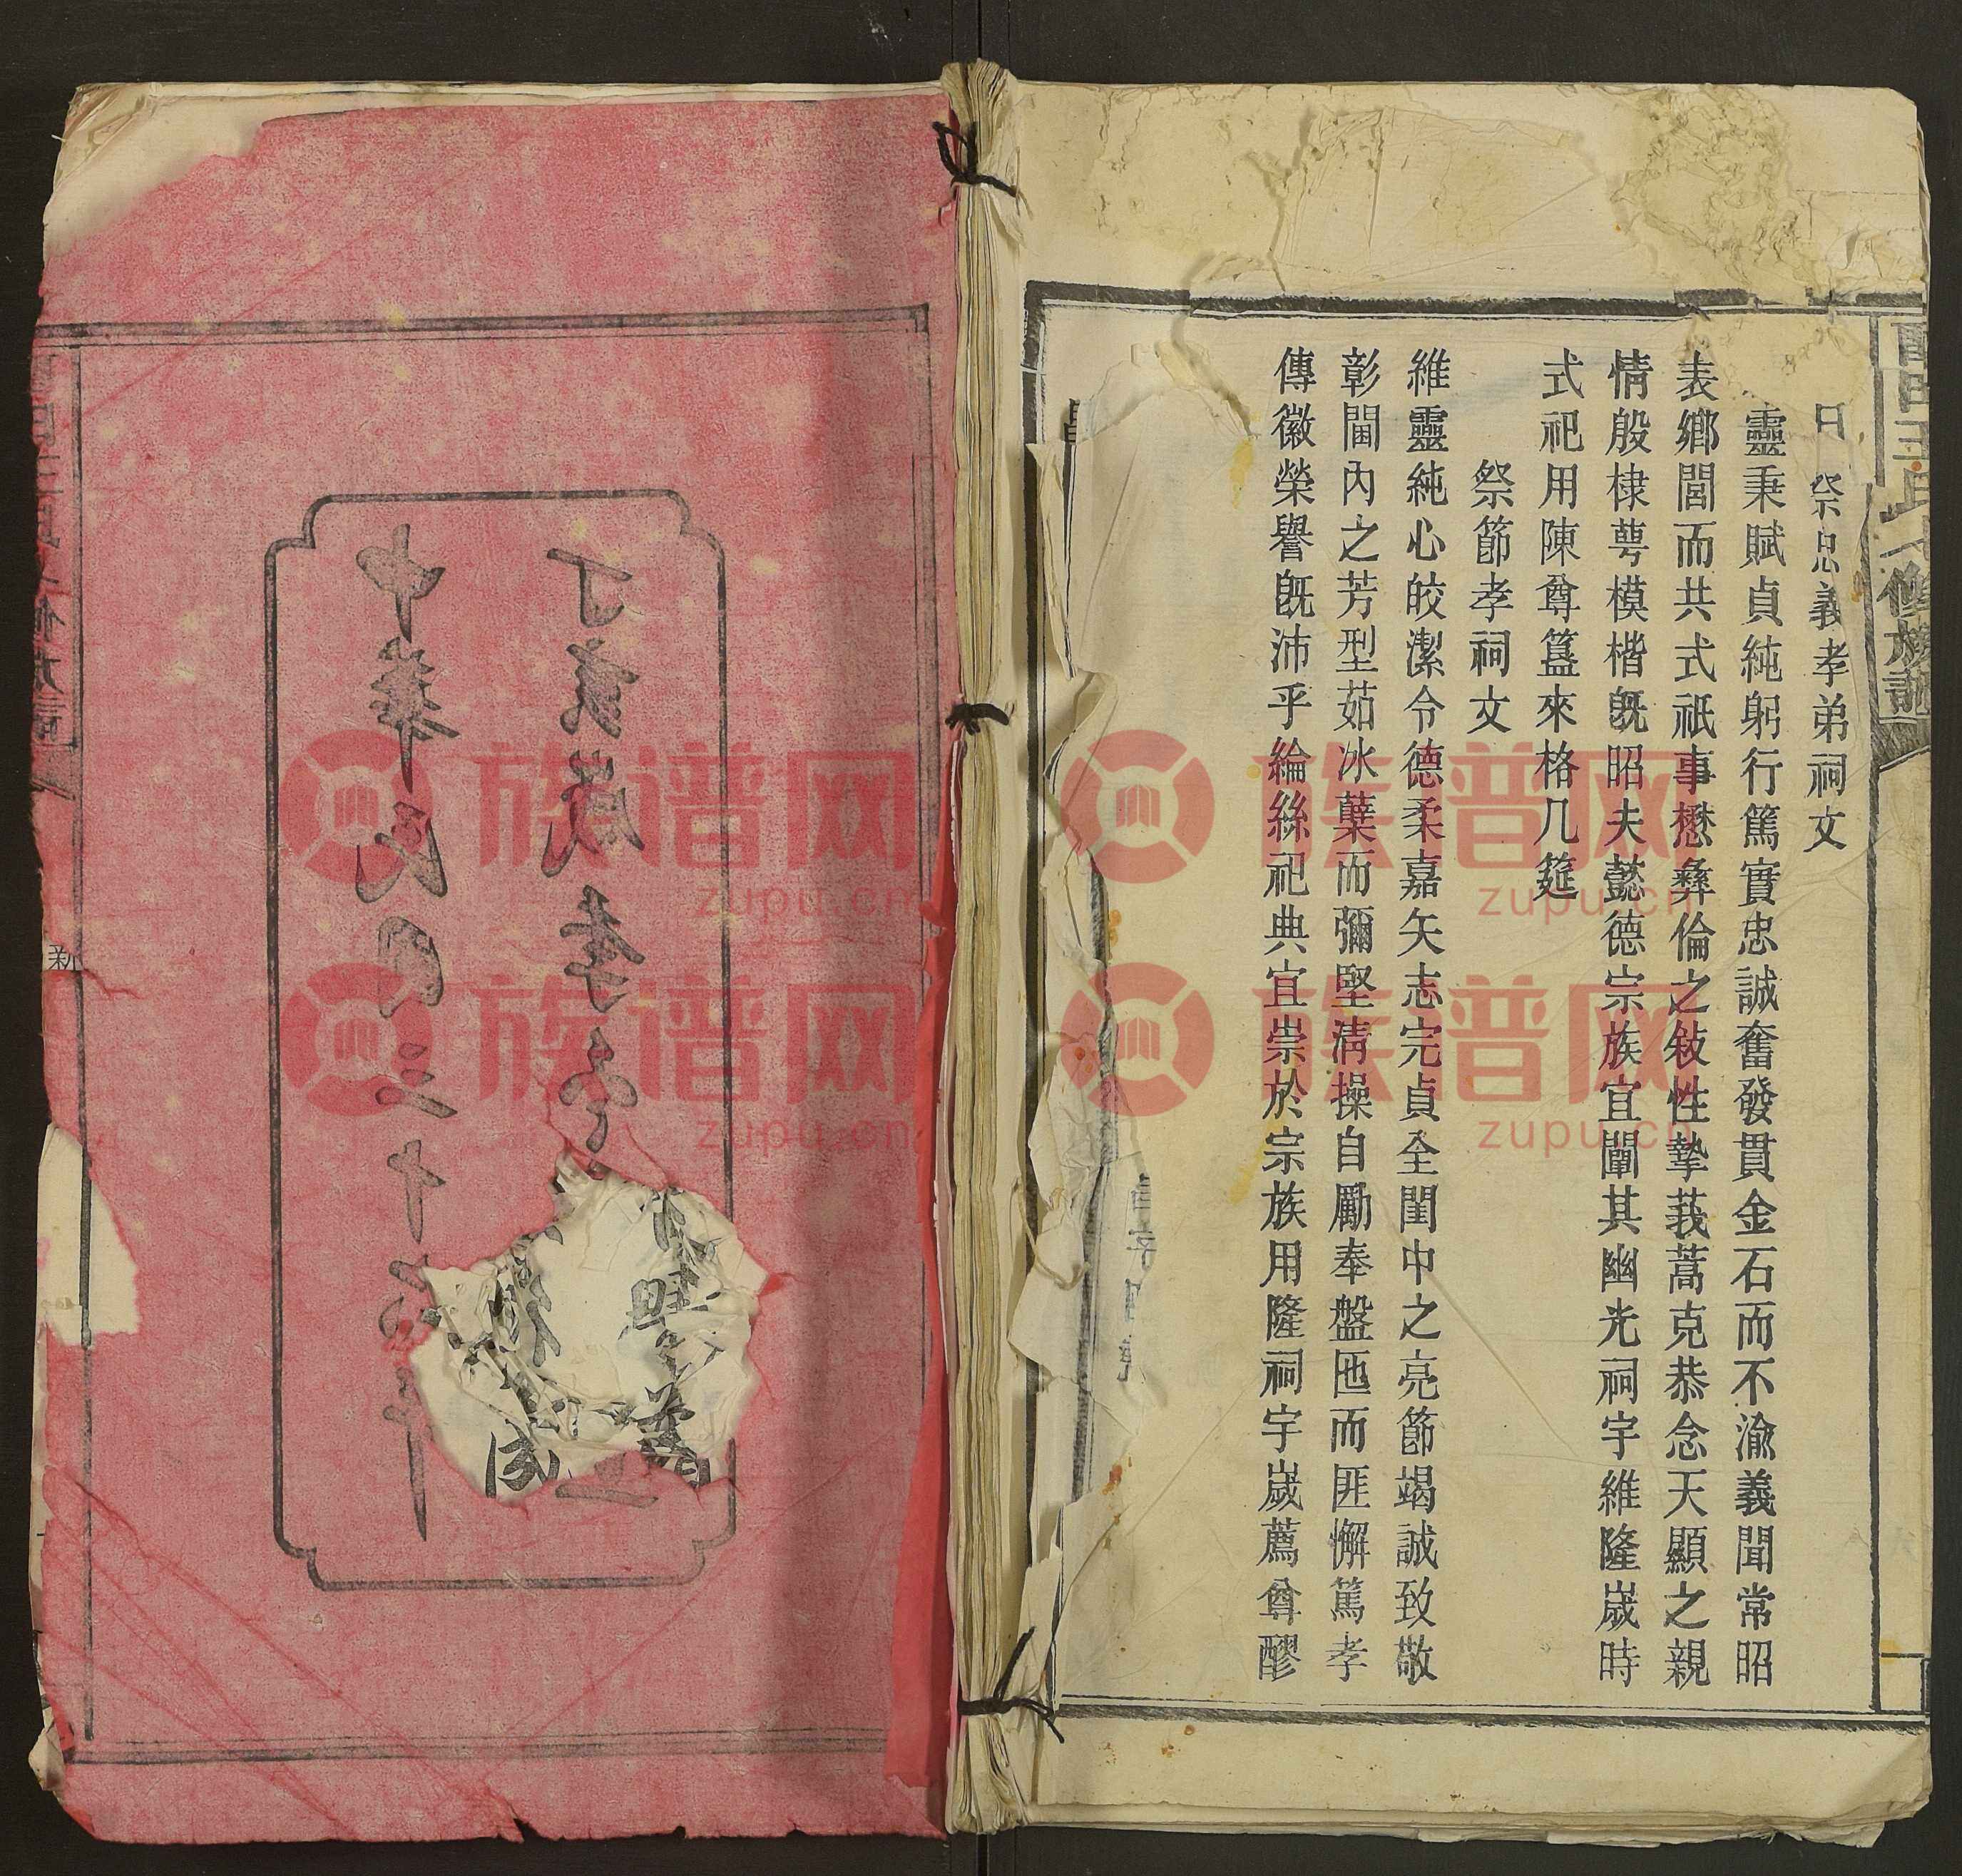 祭忠義孝弟祠文
靈秉賦貞純躬行篤實忠誠奮發貫金石而不渝義聞常昭
表鄉閭而共式祇事懋彝倫之敍性摯莪蒿克恭念天顯之親
情殷棣萼模楷既昭夫懿德宗族宜闡其幽光祠宇維隆歲時
式祀用陳尊簋來格几筵
祭節孝祠文
維靈純心皎潔令德柔嘉矢志完貞全閨中之亮節竭誠致敬
彰閫內之芳型茹冰蘗而彌堅清操自勵奉盤匜而匪懈篤孝
傳徽榮譽旣沛乎綸絲祀典宜崇於宗族用隆祠宇歲薦尊醪
丁亥歲季冬
中華民國三十六年
新
族谱网
zupu.cn
族谱网
zupu.cn
族谱网
zupu.cn
族谱网
zupu.cn